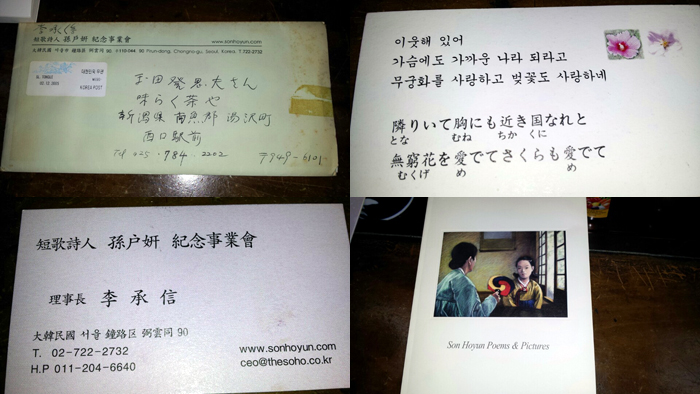 短歌詩人 孫戶妍 紀念事業會
www.sonhoyun.com
大韓民國 서울市 鐘路区 弼雲同 90 110-044 90 Pirun-dong, Chongno-gu, Seoul, Korea Tel. 722-2732
대한민국 우편
KOREA POST
玉田 発恵夫さん
味らく茶や
新潟県 南魚郡 湯沢町
西口駅前
Tel 025・784・2202 〒949-6101
이웃해 있어
가슴에도 가까운 나라 되라고
무궁화를 사랑하고 벚꽃도 사랑하네
隣りいて胸にも近き国なれと
とな むね ちか くに
無窮花を愛でてさくらも愛でて
むくげ め め
短歌詩人 孫戶妍 紀念事業會
理事長 李承信
大韓民國 서울 鐘路区 弼雲同 90
T. 02-722-2732
H.P 011-204-6640
www.sonhoyun.com
ceo@thesoho.co.kr
Son Hoyun Poems & Pictures